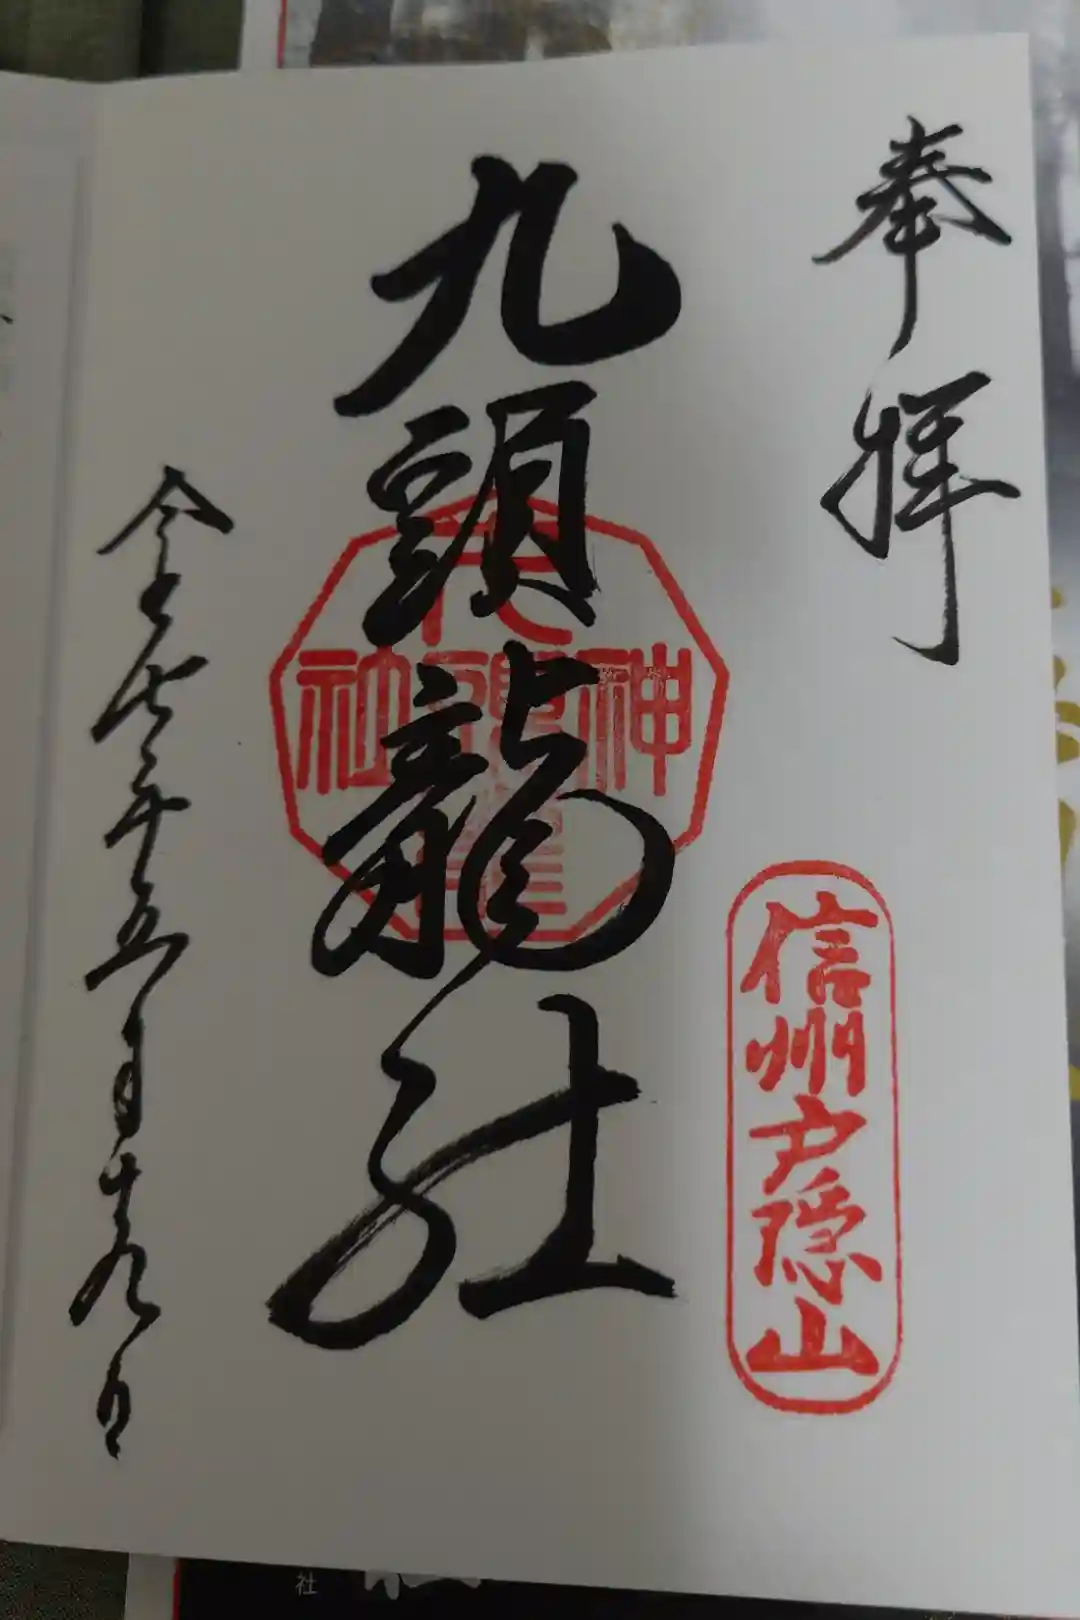 奉拝
信州戸隠山
九頭龍社
神
社
令和七年五月十九日
社